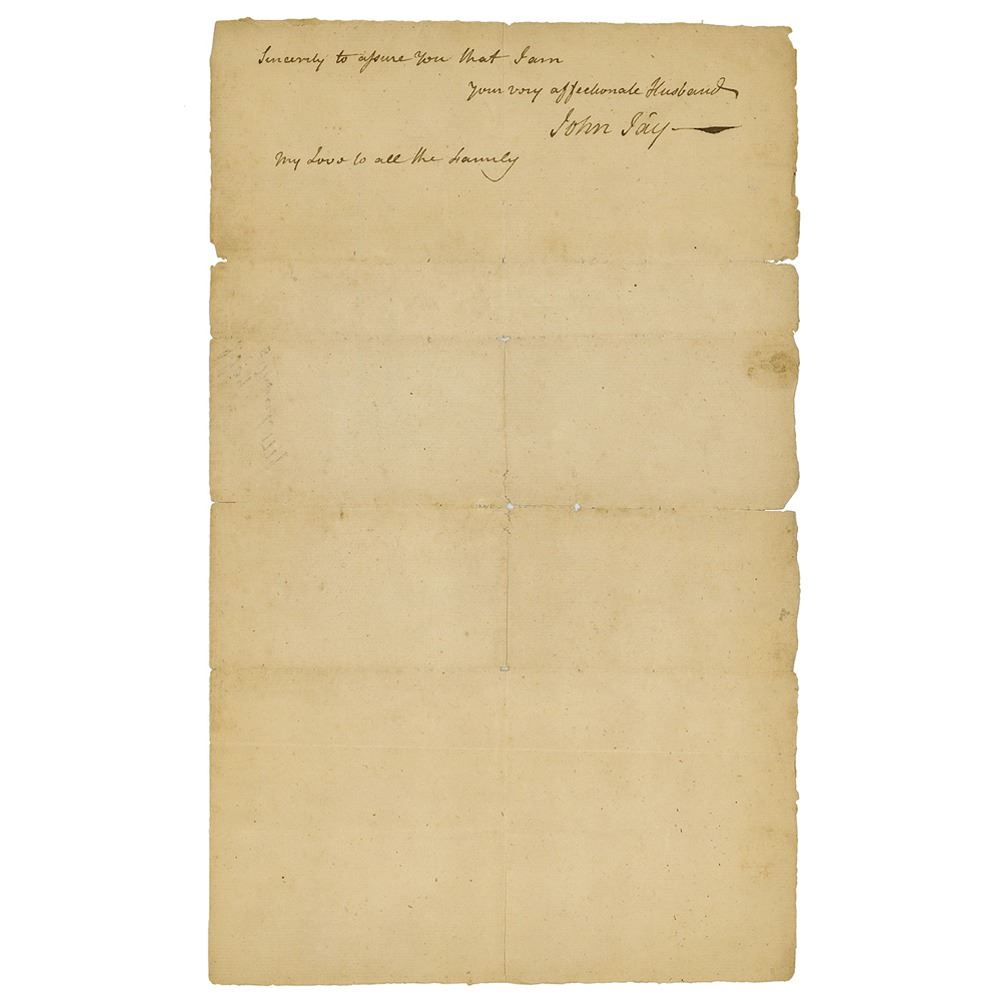 Sincerely to assure You that I am
Your very affectionate Husband
John Jay
My Love to all the Family